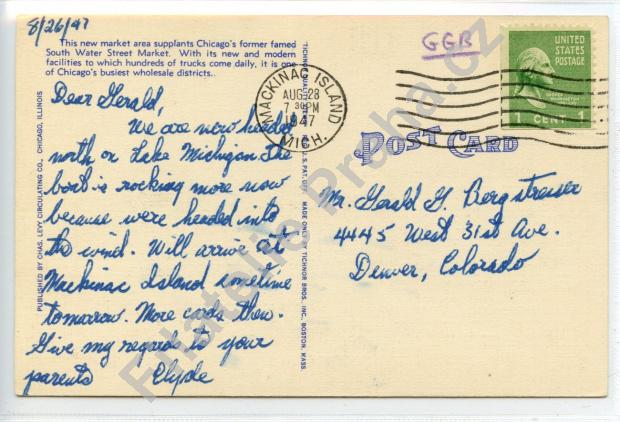 8/26/47
This new market area supplants Chicago's former famed
South Water Street Market. With its new and modern
facilities to which hundreds of trucks come daily, it is one
of Chicago's busiest wholesale districts.
Dear Gerald,
We are now headed
north on Lake Michigan. The
boat is rocking more now
because were headed into
the wind. Will arrive at
Mackinac Island sometime
tomorrow. More cards then.
Give my regards to your
parents Clyde
PUBLISHED BY CHAS. LEVY CIRCULATING CO., CHICAGO, ILLINOIS
U. S. PAT. OFF. MADE ONLY BY TICHNOR BROS., INC., BOSTON, MASS.
GGB
MACKINAC ISLAND
AUG 28
7 30PM
1947
MICH.
UNITED
STATES
POSTAGE
1 CENT 1
POST CARD
Mr. Gerald G. Bergstresser
4445 West 31st Ave.
Denver, Colorado
Filatelie Praha.cz